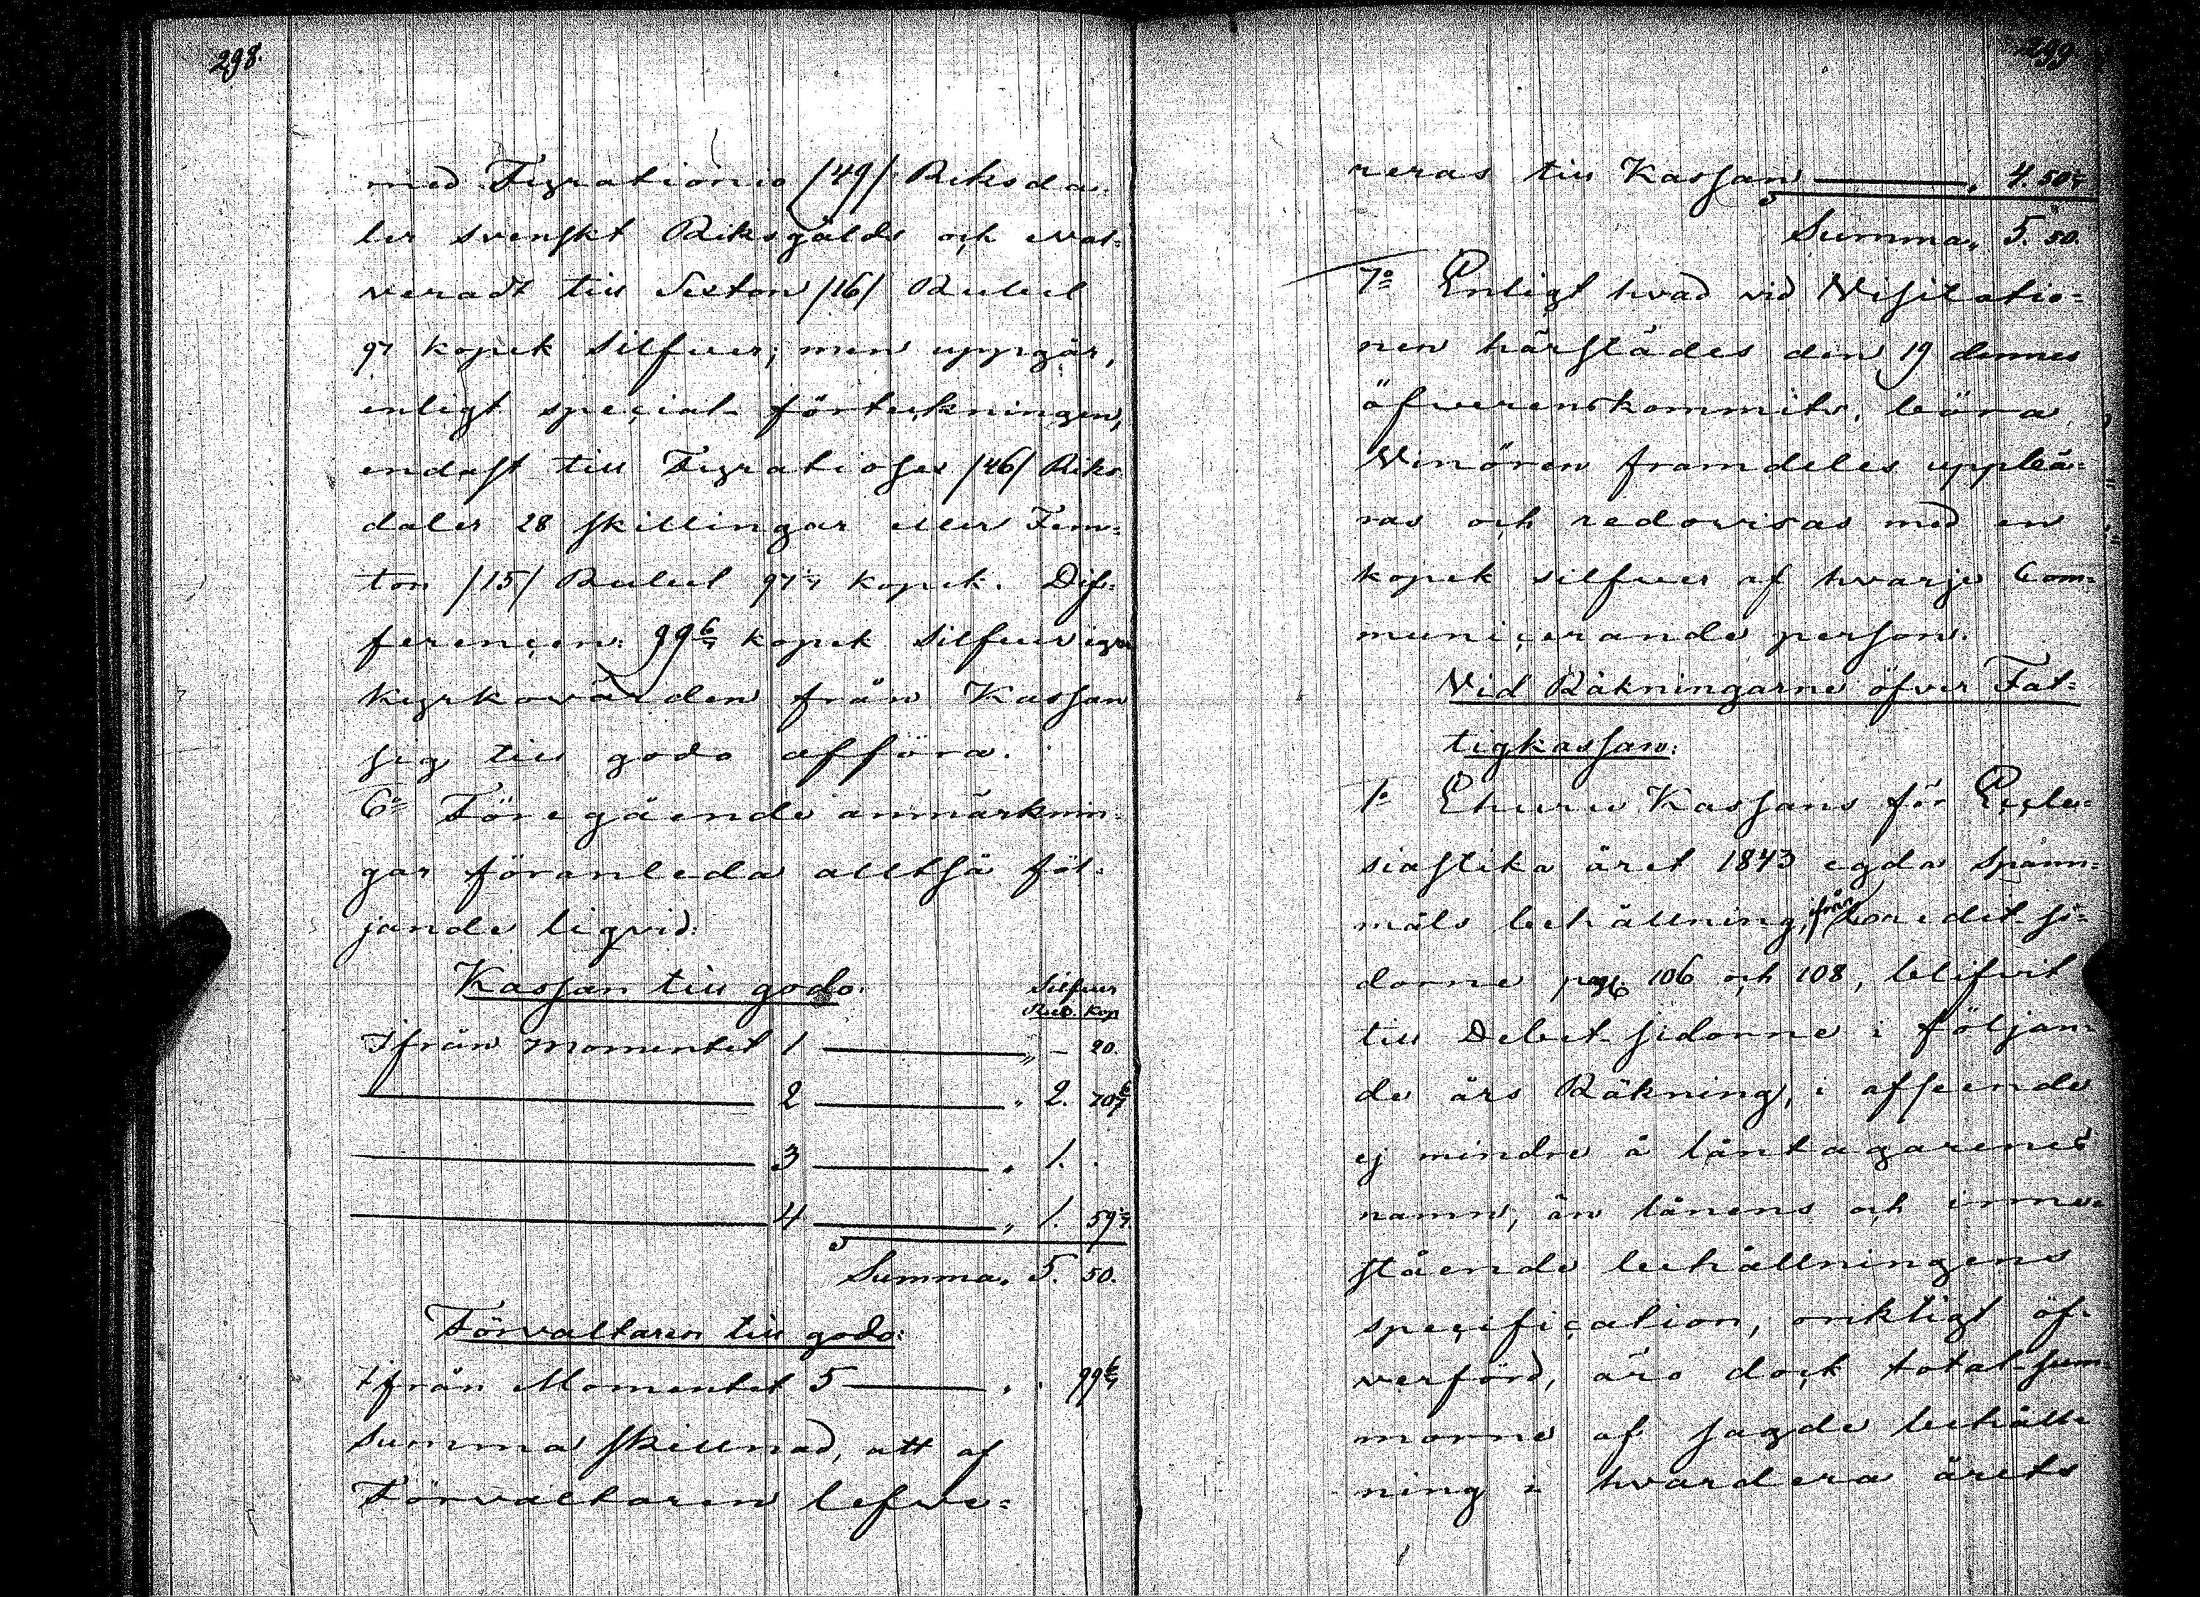 298.
med Fyrationio /49/ Riksda-
ler svenskt Riksgälds och eval-
veradt till Sexton /16/ Rubel
97 kopek silfver; men uppgår,
enligt special-förteckningen,
endast till Fyratiosex /46/ Riks-
daler 28 skillingar eller Fem-
ton /15/ Rubel 97 1/7 kopek. Dif-
ferencen: 99 6/7 kopek silfver eger
kyrkovärden från Kassan
sig till godo afföra.
6:o Föregående anmärknin-
gar föranleda alltså föl-
jande liqvid:
Kassan till godo:
Silfver
Rub. Kop
Ifrån momentet 1 — „ – 20.
— 2 — „ 2. 70 6/7
— 3 — „ 1. .
— 4 — „ 1. 59 1/7
Summa „ 5. 50.
Förvaltaren till godo:
Ifrån Momentet 5 — „ . 99 6/7
Summa skillnad, att af
Förvaltaren lefve-
299
reras till Kassan — „ 4. 50 1/7
Summa „ 5. 50.
7:o Enligt hvad vid Visitatio-
nen härstädes den 19 dennes
öfverenskommits, böra
Vinören framdeles uppbä-
ras och redovisas med en
kopek silfver af hvarje Com-
municerande person.
Vid Räkningarne öfver Fat-
tigkassan:
1:o Ehuru Kassans för Eccle-
siastika året 1843 egda Spann-
måls behållning, från Credit si-
dorne pag. 106 och 108, blifvit
till Debet sidorne i följan-
de års Räkning, i afseende
ej mindre å låntagarenes
namn, än lånens och inne-
stående behållningens
specification, oriktigt öf-
verförd, äro dock total-sum-
morne af sagde behåll-
ning i hvardera årets